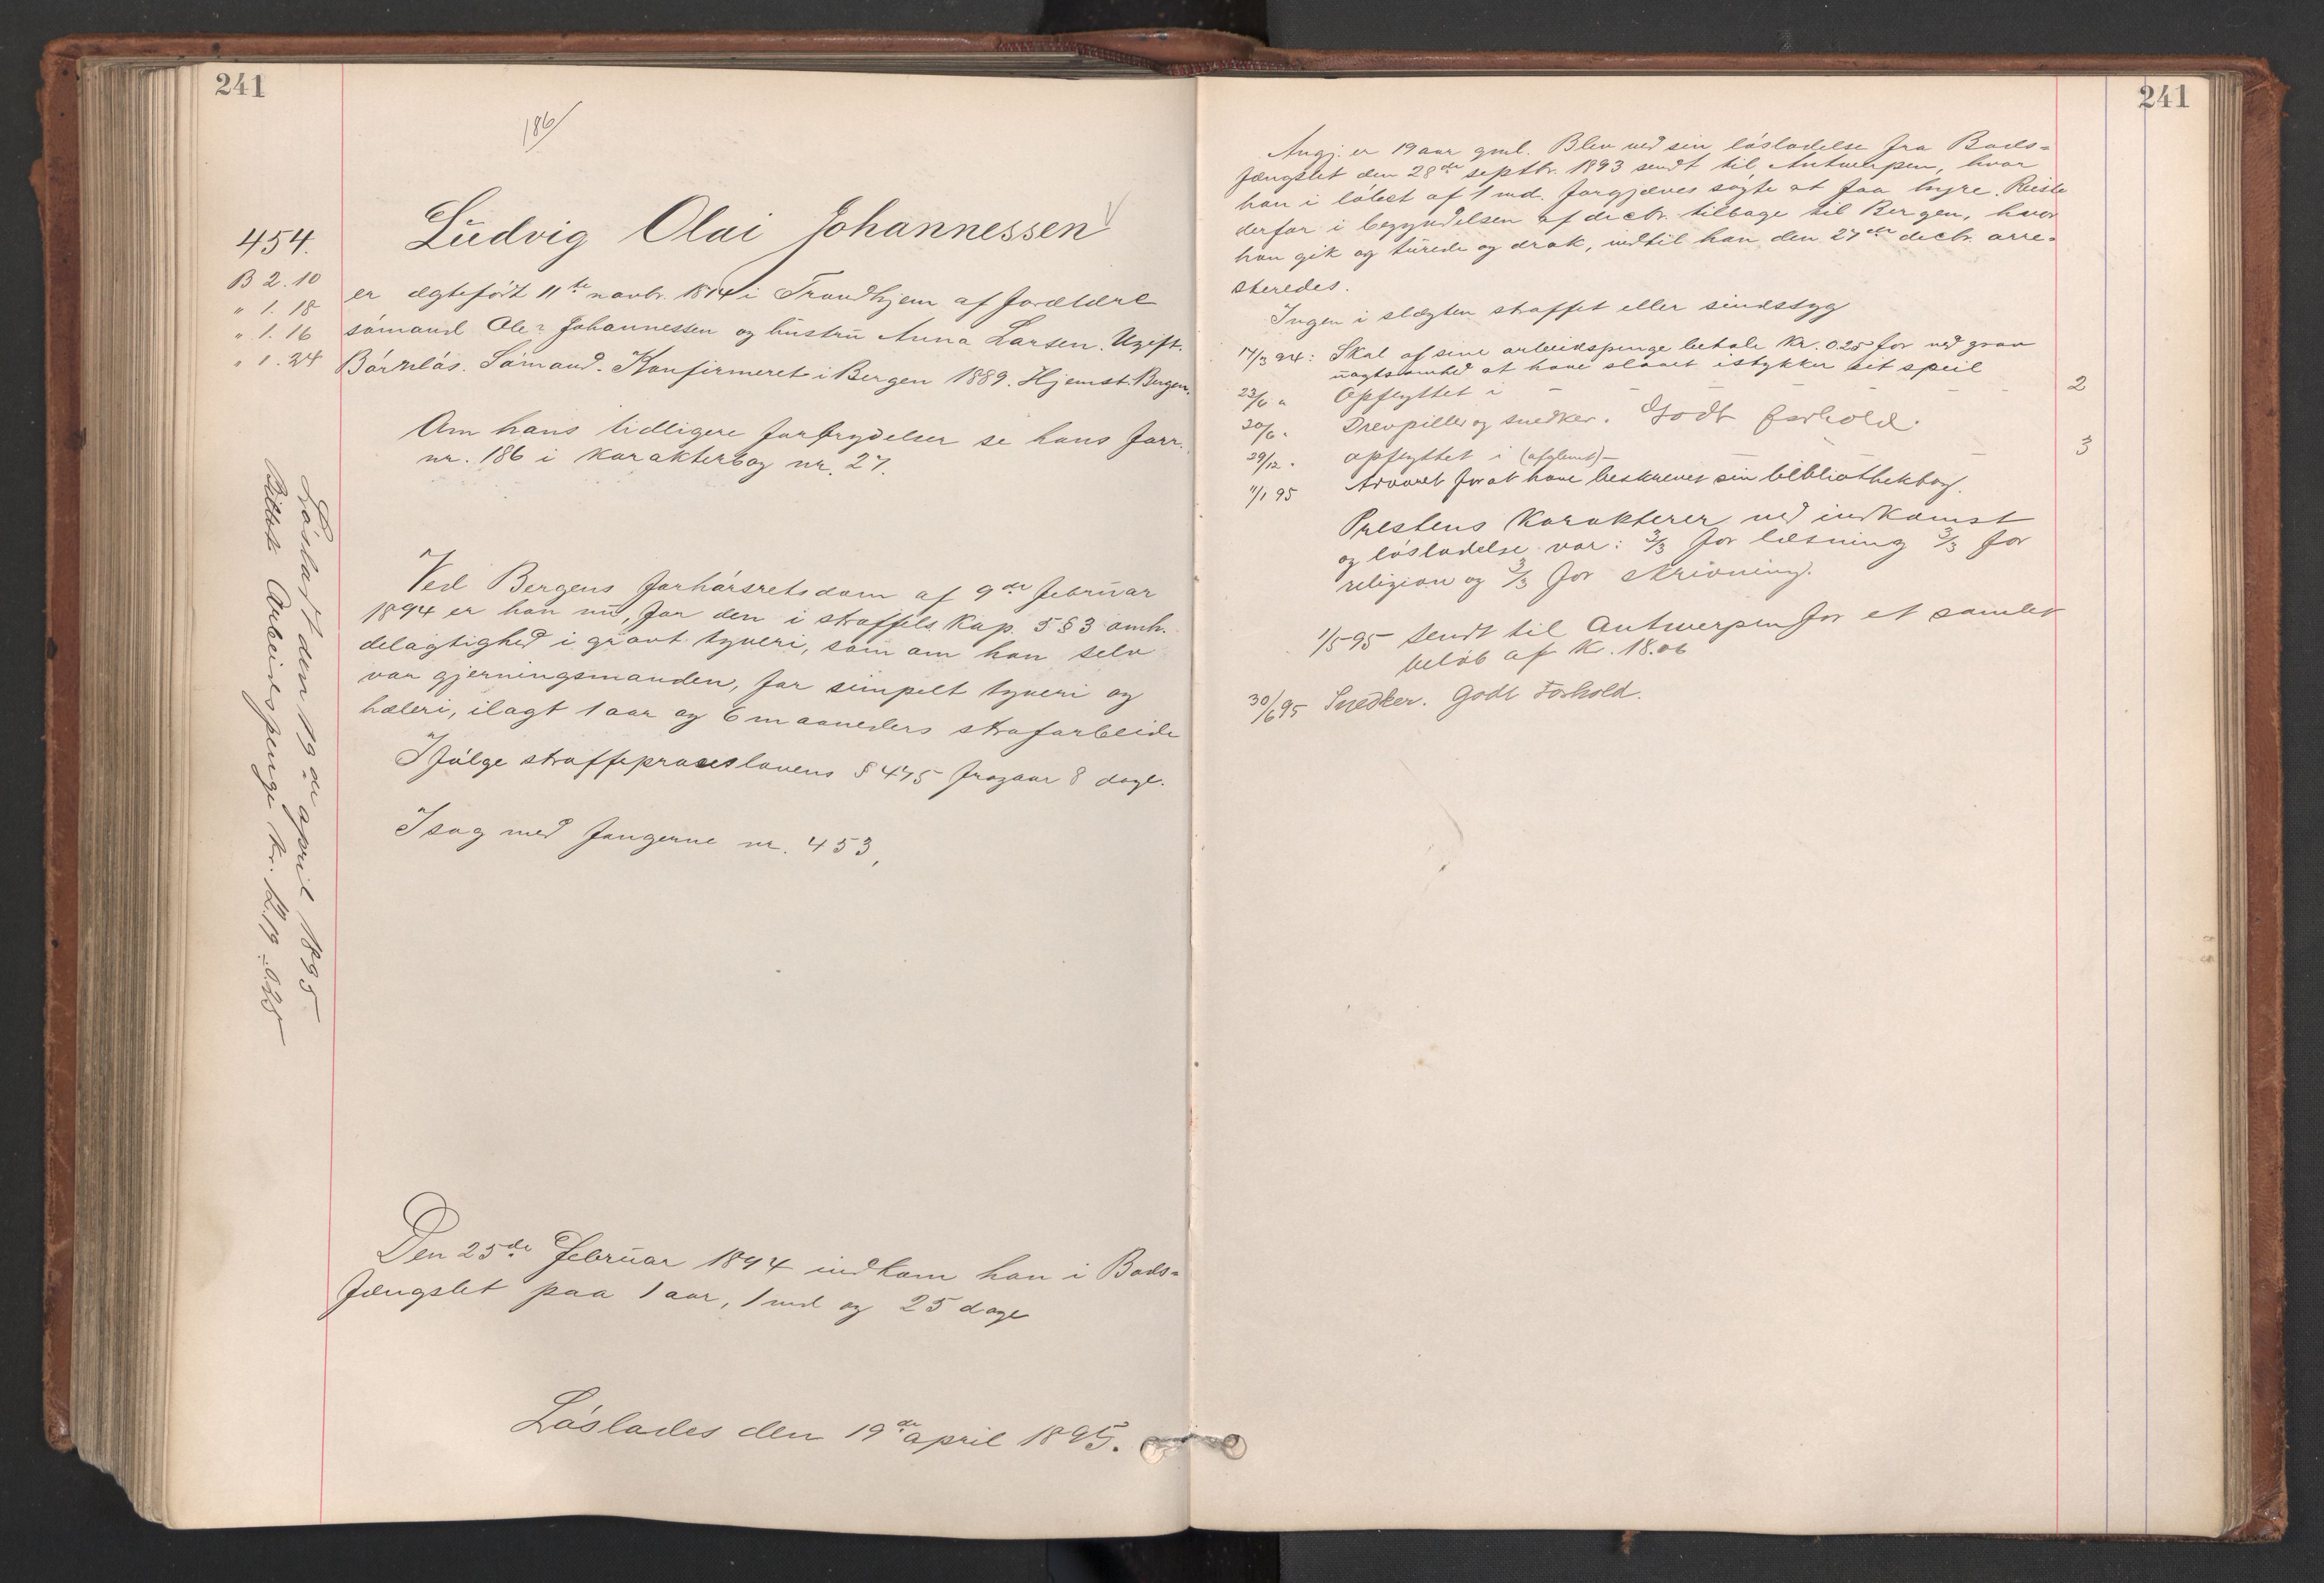 241
186/
454.
Ludvig Olai Johannessen
B 2.10
" 1.18
" 1.16
" 1.24
er ægtefödt 11te novbr. 1874 i Trondhjem af forældre
sömand Ole Johannessen og hustru Anna Larsen. Ugift.
Börnlös. Sömand. Konfirmeret i Bergen 1889. Hjemst. Bergen.
Om hans tidligere forbrydelser se hans forr.
nr. 186 i karakterbog nr. 27.
Ved Bergens forhörsretsdom af 9de februar
1894 er han nu, for den i straffels kap. 5 § 3 omh.
delagtighed i grovt tyveri, som om han selv
var gjerningsmanden, for simpelt tyveri og
hæleri, ilagt 1 aar og 6 maaneders strafarbeide
Ifölge straffeproceslovens § 475 fragaar 8 dage.
I sag med fangerne nr. 453,
Den 25de februar 1894 indkom han i Bods-
fængslet paa 1 aar, 1 md og 25 dage
Löslades den 19de april 1895.
Lösladt den 19de april 1895
Arbeidspenge kr. 12.19 ÷ 0.25
241
Angj. er 19 aar gml. Blev ved sin lösladelse fra Bods-
fængslet den 28de septbr. 1893 sendt til Antwerpen, hvor
han i löbet af 1 md. forgjæves sögte at faa hyre. Reiste
derfor i begyndelsen af decbr. tilbage til Bergen, hvor
han gik og turede og drak, indtil han den 27de decbr. arre-
steredes.
Ingen i slægten straffet eller sindssyg
17/3 94: Skal af sine arbeidspenge betale kr. 0.25 for ved grov
uagtsomhed at have slaaet istykker sit speil
23/6 " Opflyttet i - - - - 2
30/6 " Drevpiller og snedker. Godt forhold.
29/12 " opflyttet i (afglemt) - - - 3
11/1 95 Advaret for at have beskrevet sin bibliothekbog.
Prestens karakterer ved indkomst
og lösladelse var: 3/3 for læsning 3/3 for
religion og 3/3 for skrivning.
1/5 95 Sendt til Antwerpen for et samlet
belöb af Kr. 18.06
30/6 95 Snedker. Godt Forhold.